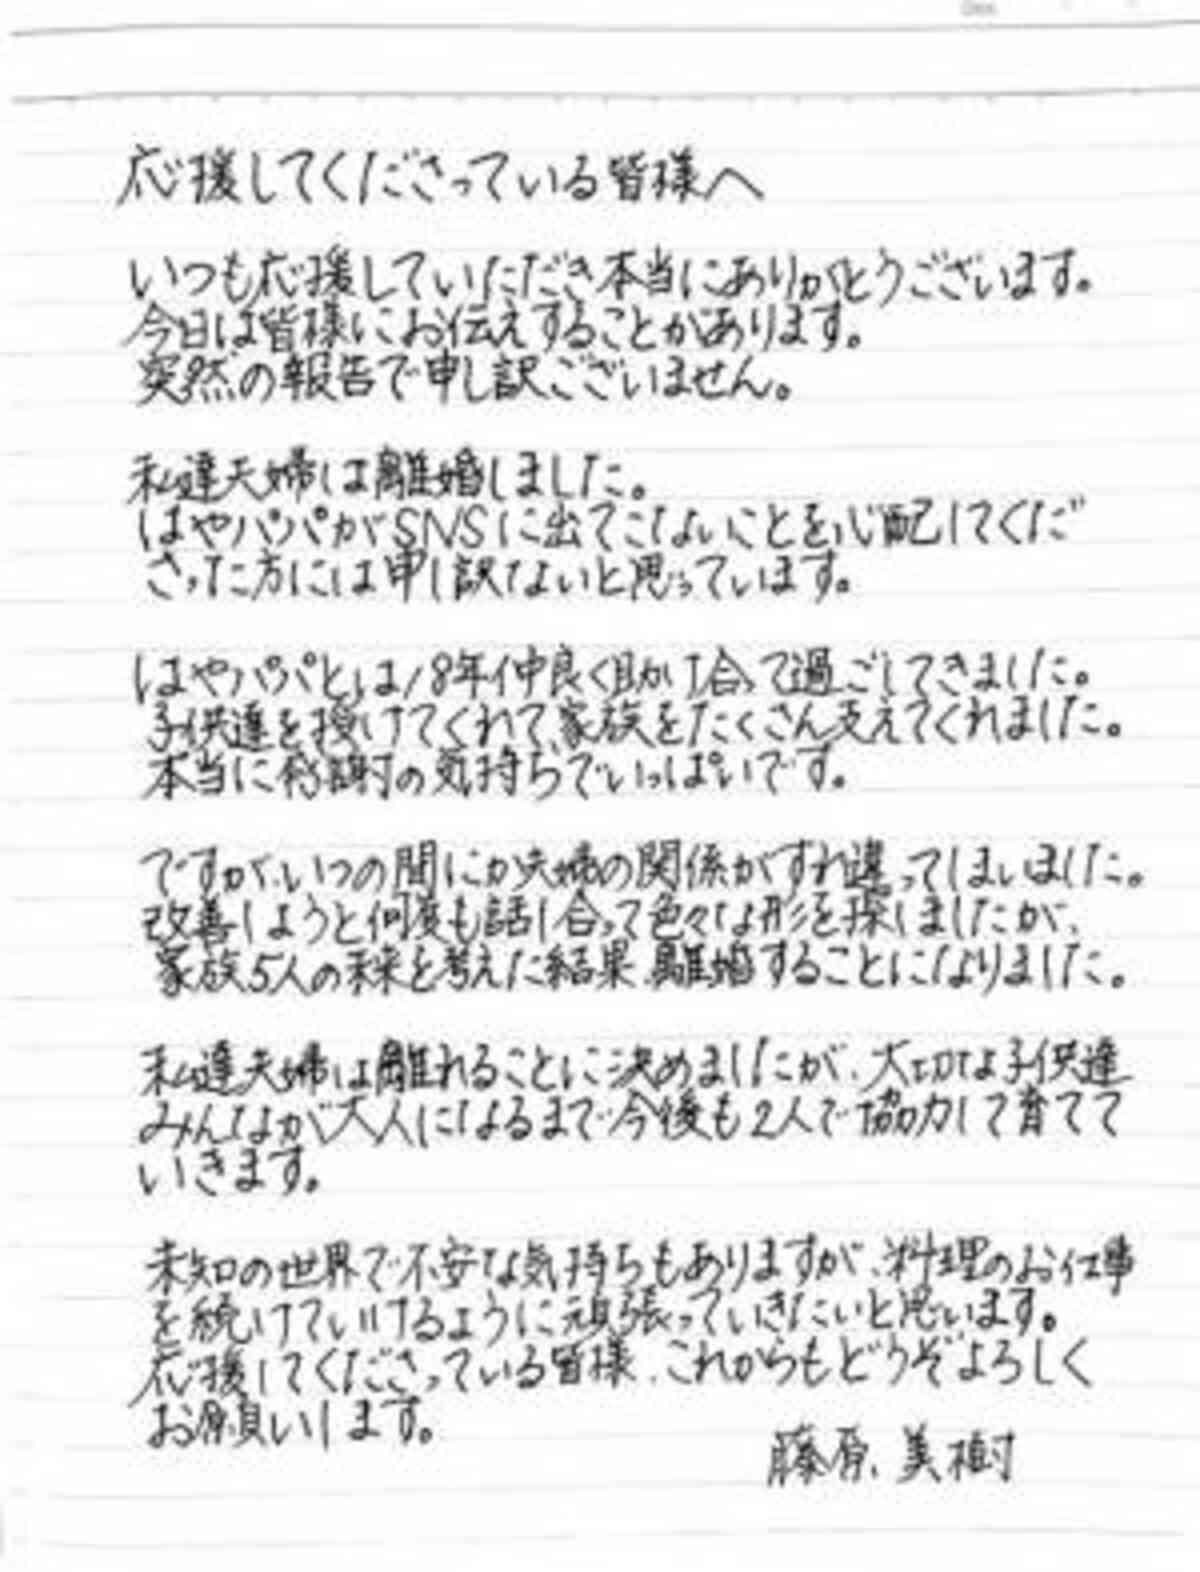 応援してくださっている皆様へ
いつも応援していただき本当にありがとうございます。
今日は皆様にお伝えすることがあります。
突然の報告で申し訳ございません。
私達夫婦は離婚しました。
はやパパがSNSに出てこないことを心配してくだ
さった方には申し訳ないと思っています。
はやパパとは18年仲良く助け合って過ごしてきました。
子供達を授けてくれて家族をたくさん支えてくれました。
本当に感謝の気持ちでいっぱいです。
ですが、いつの間にか夫婦の関係がすれ違ってしまいました。
改善しようと何度も話し合って色々な形を探しましたが、
家族5人の未来を考えた結果、離婚することになりました。
私達夫婦は離れることに決めましたが、大切な子供達
みんなが大人になるまで今後も2人で協力して育てて
いきます。
未知の世界で不安な気持ちもありますが、料理のお仕事
を続けていけるように頑張っていきたいと思います。
応援してくださっている皆様、これからもどうぞよろしく
お願いします。
藤原美樹